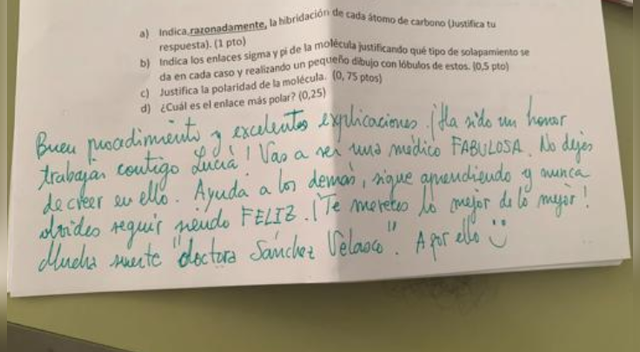 a) Indica, razonadamente, la hibridación de cada átomo de carbono (Justifica tu
respuesta). (1 pto)
b) Indica los enlaces sigma y pi de la molécula justificando qué tipo de solapamiento se
da en cada caso y realizando un pequeño dibujo con lóbulos de estos. (0,5 pto)
c) Justifica la polaridad de la molécula. (0,75 ptos)
d) ¿Cuál es el enlace más polar? (0,25)
Buen procedimiento y excelentes explicaciones. ¡Ha sido un honor
trabajar contigo Lucía! Vas a ser una médico FABULOSA. No dejes
de creer en ello. Ayuda a los demás, sigue aprendiendo y nunca
olvides seguir siendo FELIZ. ¡Te mereces lo mejor de lo mejor!
Mucha suerte "doctora Sánchez Velasco". A por ello